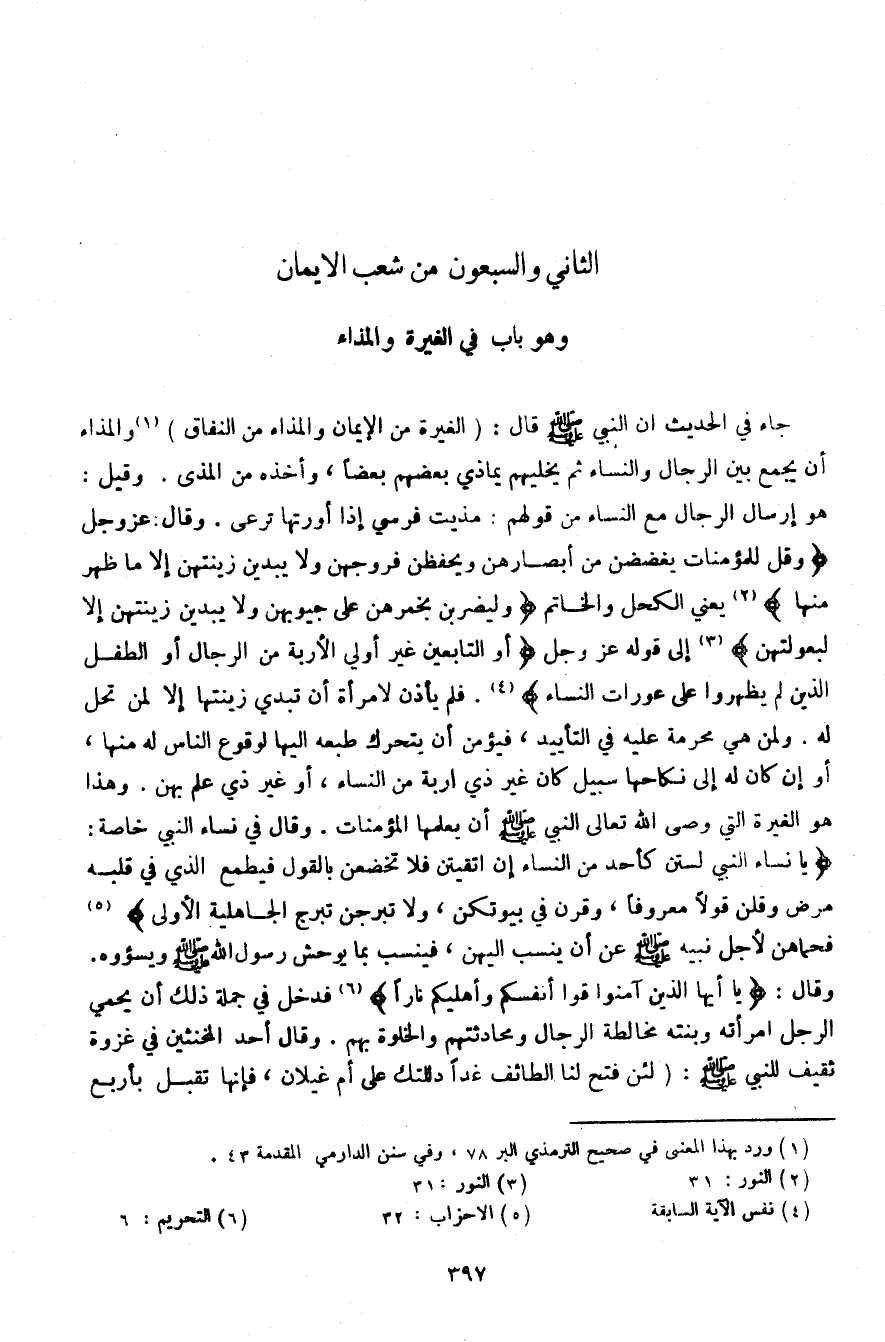 الثاني والسبعون من شعب الايمان
وهو باب في الغيرة والمذاء
جاء في الحديث ان النبي ﷺ قال : ( الغيرة من الإيمان والمذاء من النفاق ) (١) والمذاء
أن يجمع بين الرجال والنساء ثم يخليهم يماذي بعضهم بعضاً ، وأخذه من المذى . وقيل :
هو إرسال الرجال مع النساء من قولهم : مذيت فرسي إذا أورتها ترعى . وقال : عزوجل
﴿ وقل للمؤمنات يغضضن من أبصارهن ويحفظن فروجهن ولا يبدين زينتهن إلا ما ظهر
منها ﴾ (٢) يعني الكحل والخاتم ﴿ وليضربن بخمرهن على جيوبهن ولا يبدين زينتهن إلا
لبعولتهن ﴾ (٣) إلى قوله عز وجل ﴿ أو التابعين غير أولي الأربة من الرجال أو الطفل
الذين لم يظهروا على عورات النساء ﴾ (٤) . فلم يأذن لامرأة أن تبدي زينتها إلا لمن تحل
له . ولمن هي محرمة عليه في التأييد ، فيؤمن أن يتحرك طبعه اليها لوقوع الناس له منها ،
أو إن كان له إلى نكاحها سبيل كان غير ذي اربة من النساء ، أو غير ذي علم بهن . وهذا
هو الغيرة التي وصى الله تعالى النبي ﷺ أن يعلمها المؤمنات . وقال في نساء النبي خاصة :
﴿ يا نساء النبي لستن كأحد من النساء إن اتقيتن فلا تخضعن بالقول فيطمع الذي في قلبه
مرض وقلن قولاً معروفاً ، وقرن في بيوتكن ، ولا تبرجن تبرج الجاهلية الأولى ﴾ (٥)
فحماهن لأجل نبيه ﷺ عن أن ينسب اليهن ، فينسب بما يوحش رسول الله ﷺ ويسؤوه.
وقال : ﴿ يا أيها الذين آمنوا قوا أنفسكم وأهليكم ناراً ﴾ (٦) فدخل في جملة ذلك أن يحمي
الرجل امرأته وبنته مخالطة الرجال ومحادثتهم والخلوة بهم . وقال أحد المخنثين في غزوة
ثقيف للنبي ﷺ : ( لئن فتح لنا الطائف غداً دللتك على أم غيلان ، فإنها تقبل بأربع
(١) ورد بهذا المعنى في صحيح الترمذي البر ٧٨ ، وفي سنن الدارمي المقدمة ٤٣ .
(٢) النور : ٣١ (٣) النور : ٣١
(٤) نفس الآية السابقة (٥) الاحزاب : ٣٢ (٦) التحريم : ٦
٣٩٧